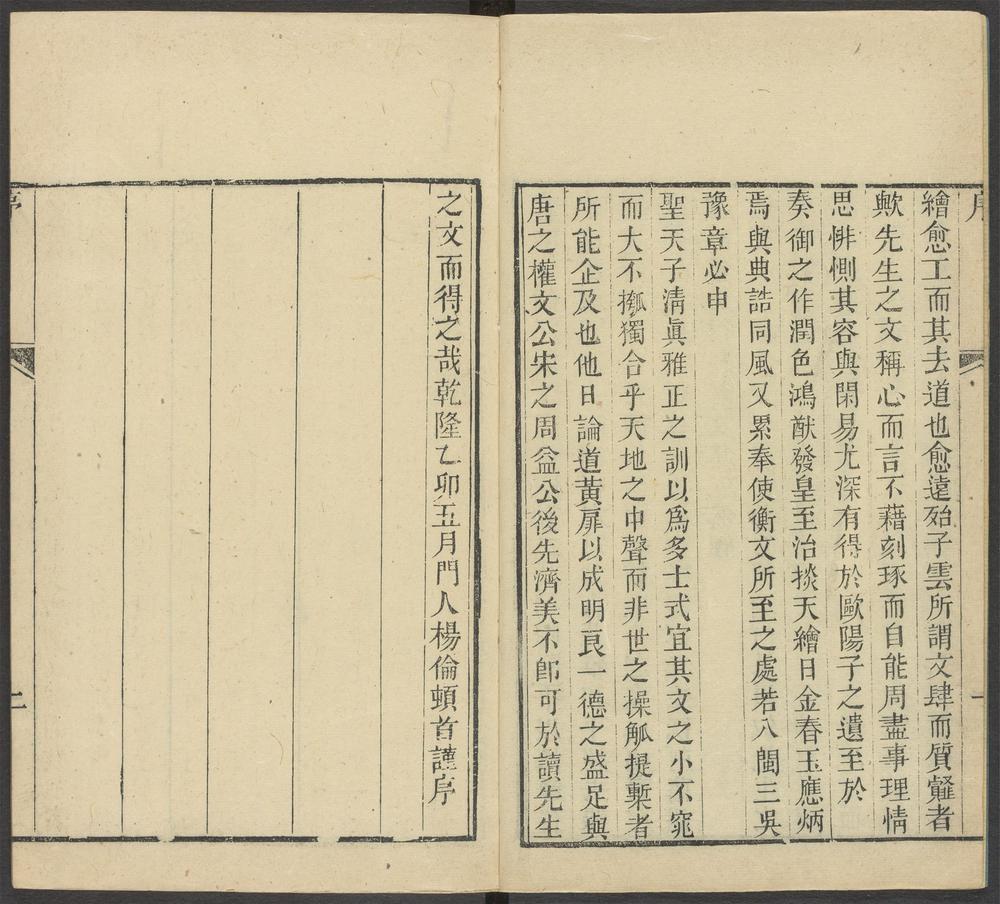 序
一
繪愈工而其去道也愈遠殆子雲所謂文肆而質䪥者
歟先生之文稱心而言不藉刻琢而自能周盡事理情
思悱惻其容與閑易尤深有得於歐陽子之遺至於
奏御之作潤色鴻猷發皇至治掞天繪日金舂玉應炳
焉與典誥同風又累奉使衡文所至之處若八閩三吳
豫章必申
聖天子清眞雅正之訓以爲多士式宜其文之小不窕
而大不摦獨合乎天地之中聲而非世之操觚提槧者
所能企及也他日論道黃扉以成明良一德之盛足與
唐之權文公宋之周益公後先濟美不卽可於讀先生
之文而得之哉乾隆乙卯五月門人楊倫頓首謹序
序
二